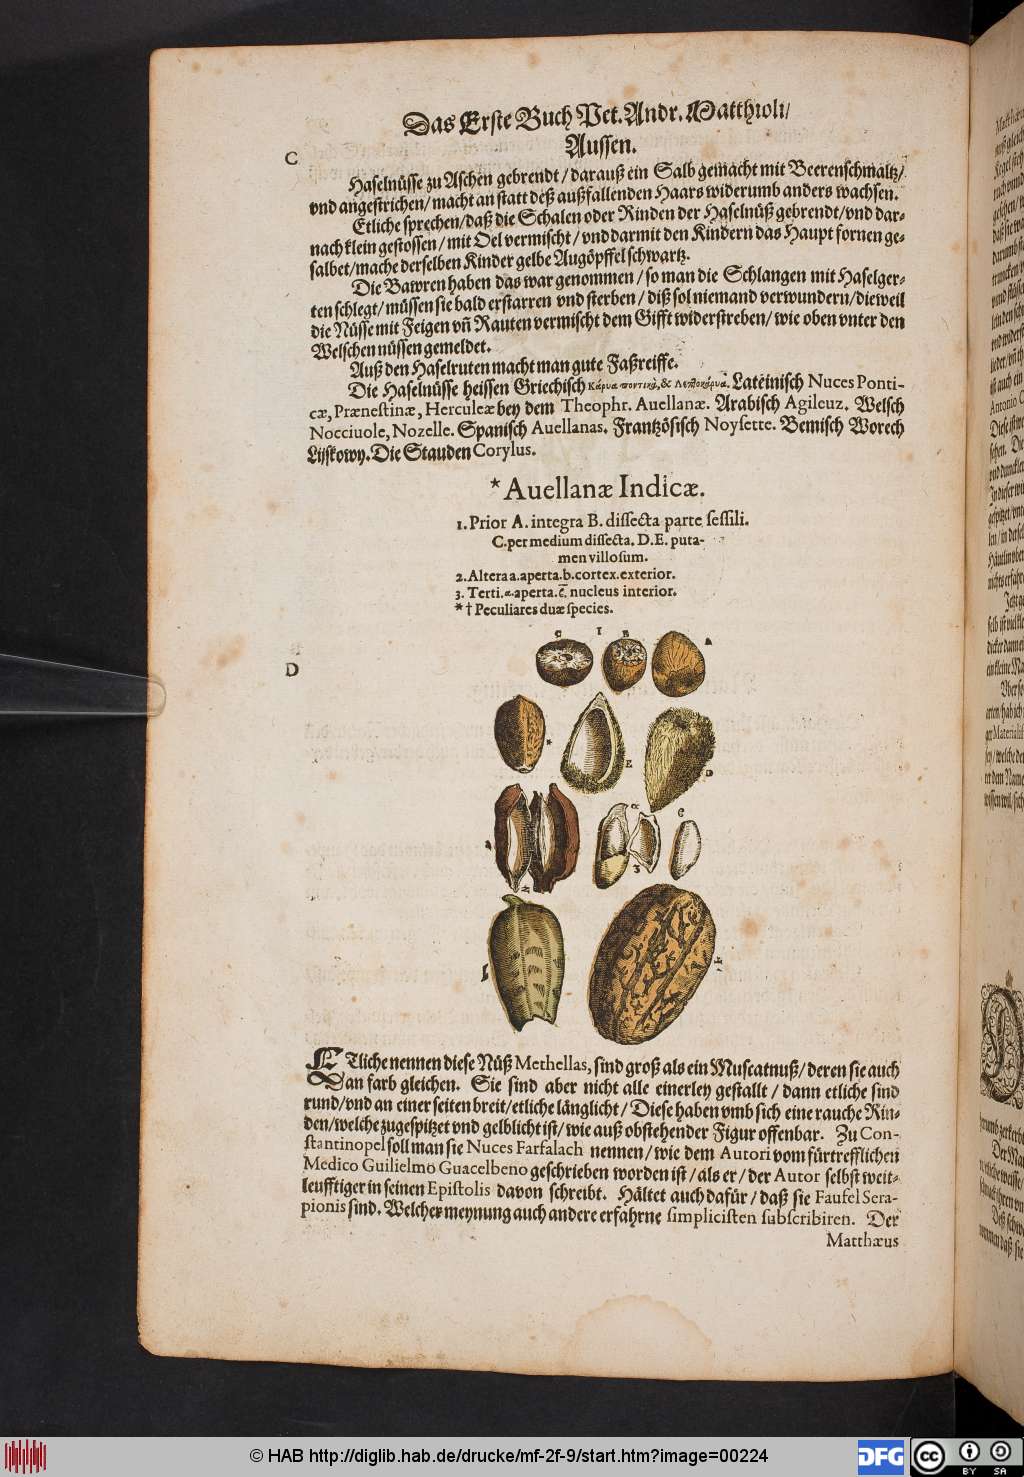 Das Erste Buch Pet. Andr. Matthioli/
Aussen.
C
Haselnüsse zu Aschen gebrendt / darauß ein Salb gemacht mit Beerenschmaltz/
vnd angestrichen/ macht an statt deß außfallenden Haars widerumb anders wachsen.
Etliche sprechen/daß die Schalen oder Rinden der Haselnüß gebrendt/vnd dar-
nach klein gestossen / mit Oel vermischt / vnd darmit den Kindern das Haupt fornen ge-
salbet/mache derselben Kinder gelbe Augöpffel schwartz.
Die Bawren haben das war genommen / so man die Schlangen mit Haselger-
ten schlegt/ müssen sie bald erstarren vnd sterben / diß sol niemand verwundern/dieweil
die Nüsse mit Feigen vñ Rauten vermischt dem Gifft widerstreben/ wie oben vnter den
Welschen nüssen gemeldet.
Auß den Haselruten macht man gute Faßreiffe.
Die Haselnüsse heissen Griechisch Κάρυα ποντικὰ, & Λεπτοκάρυα. Lateinisch Nuces Ponti-
cæ, Prænestinæ, Herculeæ bey dem Theophr. Auellanæ. Arabisch Agileuz. Welsch
Nocciuole, Nozelle. Spanisch Auellanas. Frantzösisch Noysette. Bemisch Worech
Lijskowy. Die Stauden Corylus.
* Auellanæ Indicæ.
1. Prior A. integra B. dissecta parte sessili.
C. per medium dissecta. D. E. puta-
men villosum.
2. Altera a. aperta. b. cortex. exterior.
3. Terti. α. aperta. c̄. nucleus interior.
* † Peculiares duæ species.
D
C 1 B A
*
E
D
α
3
ETliche nennen diese Nüß Methellas, sind groß als ein Muscatnuß/ deren sie auch
Dan farb gleichen. Sie sind aber nicht alle einerley gestallt / dann etliche sind
rund/vnd an einer seiten breit/etliche länglicht / Diese haben vmb sich eine rauche Rin-
den/welche zugespitzet vnd gelblicht ist/ wie auß obstehender Figur offenbar. Zu Con-
stantinopel soll man sie Nuces Farfalach nennen / wie dem Autori vom fürtrefflichen
Medico Guilielmo Guacelbeno geschrieben worden ist / als er / der Autor selbst weit-
leufftiger in seinen Epistolis davon schreibt. Hältet auch dafür / daß sie Faufel Sera-
pionis sind. Welcher meynung auch andere erfahrne simplicisten subscribiren. Der
Matthæus
© HAB http://diglib.hab.de/drucke/mf-2f-9/start.htm?image=00224
DFG
cc
BY SA